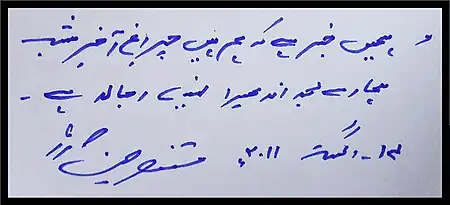 ہمیں خبر ہے کہ ہم ہیں چراغِ آخرِ شب
ہمارے بعد اندھیرا نہیں اجالا ہے ۔
۱۴ ۔ اگست ۲۰۱۱ء مستنصر حسین